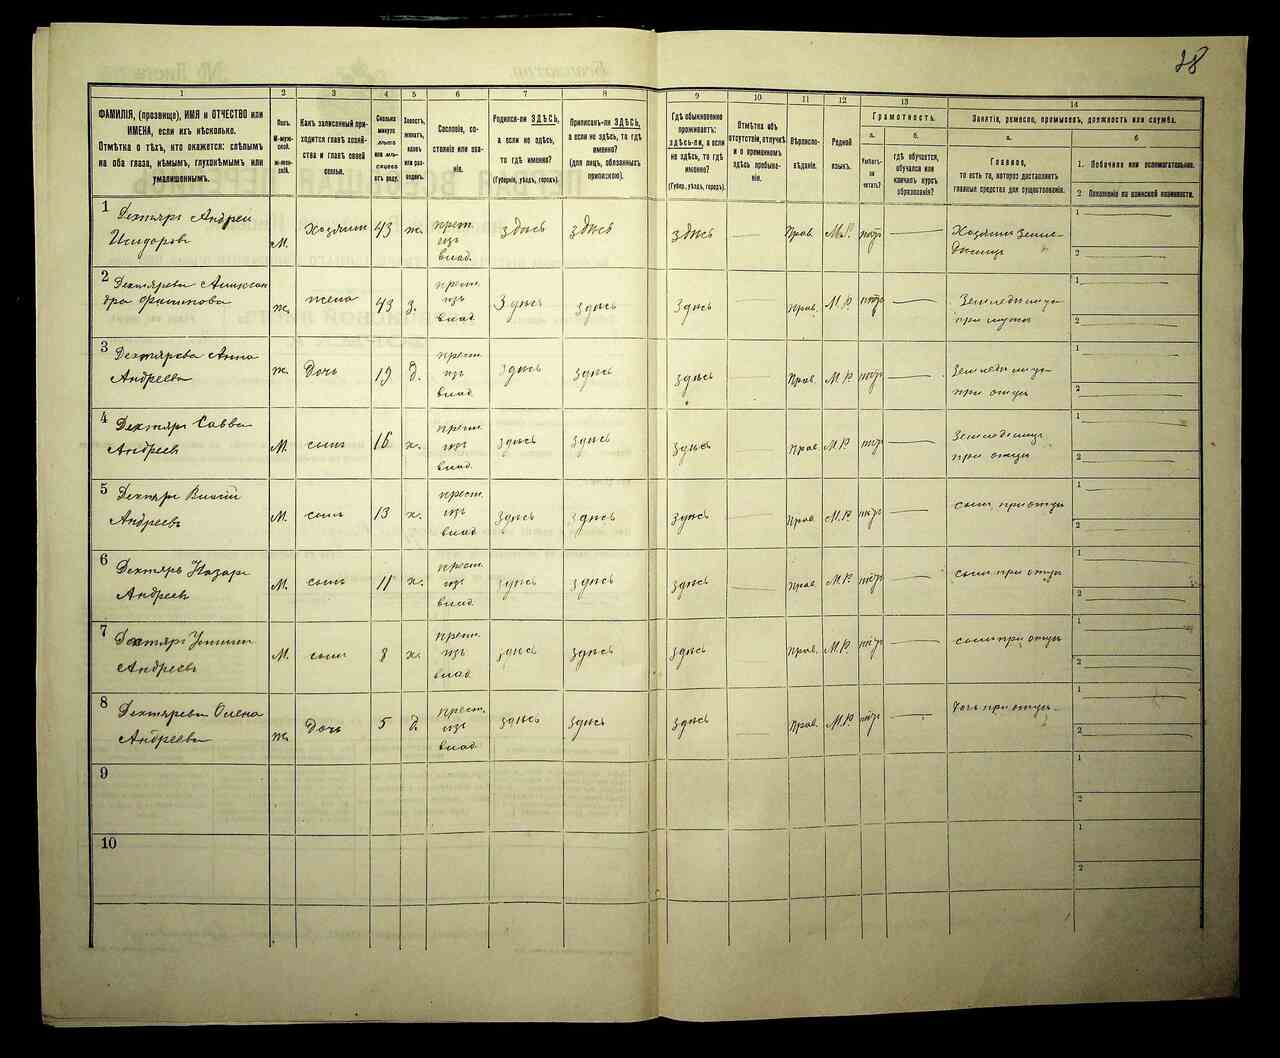 38
1
2
3
4
5
6
7
8
9
10
11
12
13
14
ФАМИЛІЯ, (прозвище), ИМЯ и ОТЧЕСТВО или ИМЕНА, если ихъ нѣсколько.
Отмѣтка о тѣхъ, кто окажется: слѣпымъ на оба глаза, нѣмымъ, глухонѣмымъ или умалишоннымъ.
Полъ.
М-мужской.
Ж-женскій.
Какъ записанный приходится главѣ хозяйства и главѣ своей семьи.
Сколько минуло лѣтъ или мѣсяцевъ отъ роду.
Холостъ, женатъ, вдовъ или разведенъ.
Сословіе, состояніе или званіе.
Родился-ли ЗДѢСЬ, а если не здѣсь, то гдѣ именно?
(Губернія, уѣздъ, городъ).
Приписанъ-ли ЗДѢСЬ, а если не здѣсь, то гдѣ именно?
(для лицъ, обязанныхъ припискою).
Гдѣ обыкновенно проживаетъ: здѣсь-ли, а если не здѣсь, то гдѣ именно?
(Губер., уѣздъ, городъ).
Отмѣтка объ отсутствіи, отлучкѣ и о временномъ здѣсь пребываніи.
Вѣроисповѣданіе.
Родной языкъ.
Грамотность.
а.
Умѣетъ-ли читать?
б.
гдѣ обучается, обучался или кончилъ курсъ образованія?
Занятія, ремесло, промыселъ, должность или служба.
а.
Главное,
то есть то, которое доставляетъ главныя средства для существованія.
б
1. Побочное или вспомогательное.
2 Положеніе по воинской повинности.
1 Дехтярь Андрей Исидоровъ М. хозяинъ 43 ж. крест. изъ влад. здѣсь здѣсь здѣсь Прав. М.Р. нѣтъ Хозяинъ Земле- 1 2
2 Дехтярева Александра М ж. жена 43 з. крест. изъ влад. Здѣсь здѣсь Здѣсь Прав. М.Р. нѣтъ при мужѣ 1 2
3 Дехтярева Анна Андреева ж. Дочь 19 д. крест. изъ влад. здѣсь здѣсь здѣсь Прав. М.Р. нѣтъ при отцѣ 1 2
4 Дехтярь Савва Андреевъ М. сынъ 16 х. крест. изъ влад. здѣсь здѣсь здѣсь Прав. М.Р. нѣтъ при отцѣ 1 2
5 Дехтярь Андреевъ М. сынъ 13 х. крест. изъ влад. здѣсь здѣсь здѣсь Прав. М.Р. нѣтъ сынъ при отцѣ 1 2
6 Дехтярь Назаръ Андреевъ М. сынъ 11 х. крест. изъ влад. здѣсь здѣсь здѣсь Прав. М.Р. нѣтъ сынъ при отцѣ 1 2
7 Дехтярь Андреевъ М. сынъ 8 х. крест. изъ влад. здѣсь здѣсь здѣсь Прав. М.Р. нѣтъ сынъ при отцѣ 1 2
8 Дехтярева Олена Андреева ж. Дочь 5 д. крест. изъ влад. здѣсь здѣсь здѣсь Прав. М.Р. нѣтъ дочь при отцѣ 1 2
9 1 2
10 1 2